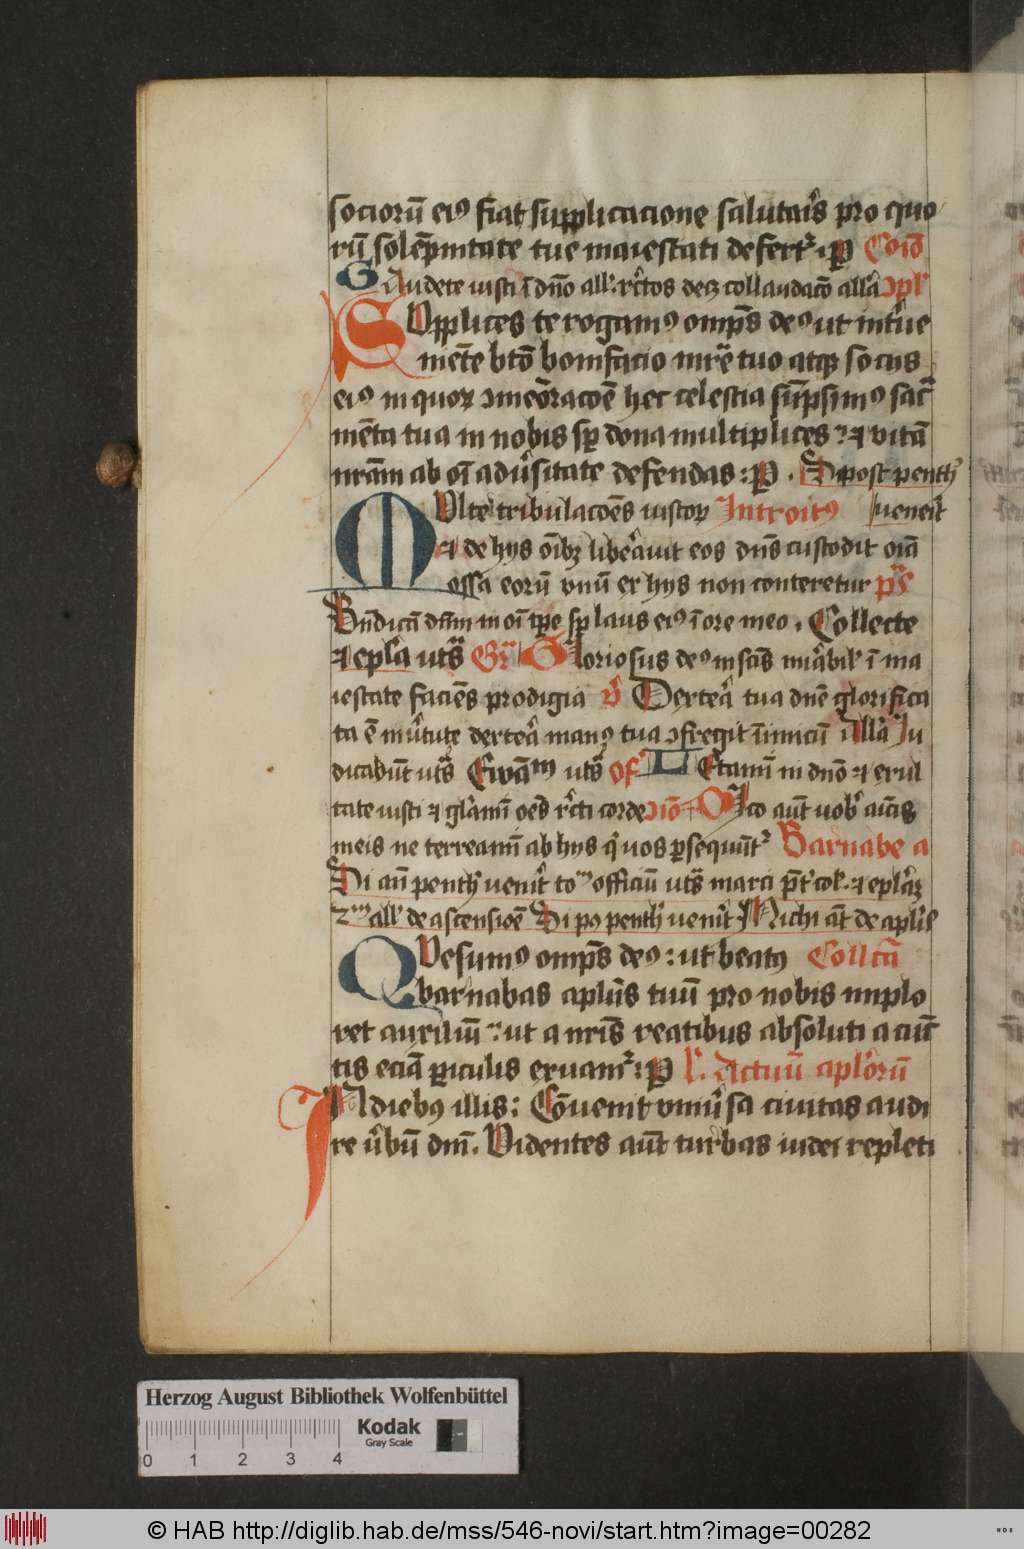 sociorū eiꝰ fiat supplicacione salutaĩs pro quo
rū solēpnitate tue maiestati defert᷑ · P Cōiō
Gaudete iusti ī dn̄o all᷑ · rc̄tos decꝫ collaudac̄o all̄a ↄpl᷑
Supplices te rogamꝰ omp̄s deꝰ ut int᷑ue
niēte btō bonifacio mr̄e tuo atqꝫ socijs
eiꝰ in quoꝝ ↄmēorac̄oē hec celestia sūpsimꝰ sac᷑
mēta tua in nobis sꝑ dona multiplices : ⁊ vitā
nrām ab oī adu᷑sitate defendas : P · Si post penth᷑
Multe tribulac̄oēs iustoꝝ Introitꝰ uenerit
⁊ de hijs oībꝫ libe᷑auit eos dn̄s custodit oīa
ossa eorū vnū ex hijs non conteretur pˢ
Bn̄dicā dn̄m in oī tp̄e sꝑ laus eiꝰ ī ore meo · Collecte
⁊ epl̄a utˢ Gr᷑ Gloriosus deꝰ in sc̄is mi᷑abil᷑ ī ma
iestate faciēs prodigia v᷑ Dexte᷑a tua dn̄e glorifica
ta ē in u᷑tute dexte᷑a manꝰ tua ↄfregit īimicū All̄a Iu
dicabūt utˢ Ewāᵐ utˢ of᷑ Letamī in dn̄o ⁊ exul
tate iusti ⁊ gl̄amī oēs rc̄ti corde ↄiō Dico aūt uob᷑ amicis
meis ne terreamī ab hijs q᷑ uos ꝑsequūt᷑ Barnabe a
Si an̄ penth᷑ uenīt toᵐ officiū utˢ marci p̄t᷑ col᷑ ⁊ epl̄aꝫ
2ᵐ all᷑ de ascensiōe Si pꝰ penth᷑ uenīt Michi aūt de apl̄is
Quesumꝰ omp̄s deꝰ : ut beatꝰ Collc̄a
barnabas apl̄us tuū pro nobis implo
ret auxiliū : ut a nr̄is reatibus absoluti a cūc
tis eciā ꝑiculis eruam᷑ : P l᷑ · Actuū apl̄orū
In diebꝰ illis : Cōuenit vniu᷑sa ciuitas audi
re u᷑bū dn̄i · Videntes aūt turbas iudei repleti
Herzog August Bibliothek Wolfenbüttel
Kodak
Gray Scale
0 1 2 3 4
© HAB http://diglib.hab.de/mss/546-novi/start.htm?image=00282